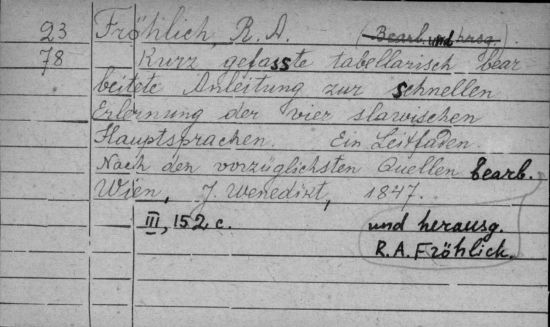 23 Fröhlich, R. A. (Bearb. und hrsg.).
78 Kurz gefasste tabellarisch bear
beitete Anleitung zur schnellen
Erlernung der vier slawischen
Hauptsprachen. Ein Leitfaden.
Nach den vorzüglichsten Quellen bearb.
Wien, J. Wenedikt, 1847.
III, 152 c. und herausg.
R. A. Fröhlick.